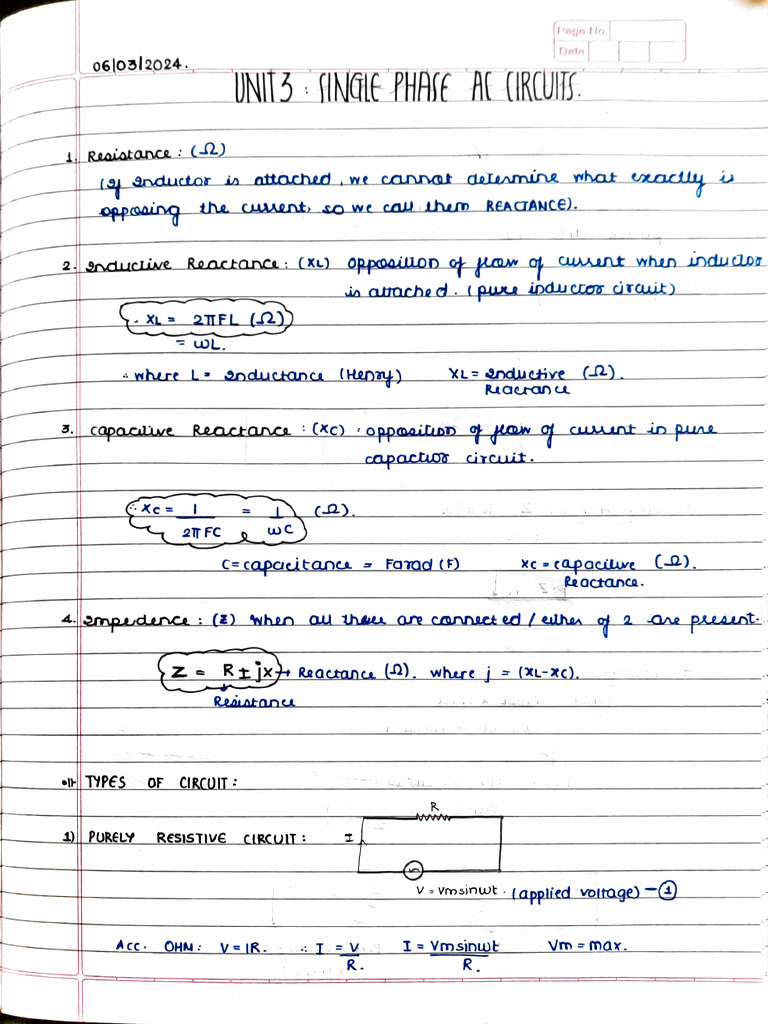 Page No.
Date
06/03/2024.
UNIT 3 : SINGLE PHASE AC CIRCUITS.
1. Resistance : (Ω)
(If Inductor is attached, we cannot determine what exactly is
opposing the current, so we call them REACTANCE).
2. Inductive Reactance : (XL) opposition of flow of current when inductor
is attached. (pure inductor circuit)
∴ XL = 2πFL (Ω)
= ωL.
∴ where L = Inductance (Henry) XL = Inductive (Ω).
Reactance
3. Capacitive Reactance : (XC) . opposition of flow of current in pure
capacitor circuit.
∴ XC = 1/2πFC = 1/ωC (Ω).
C = capacitance = Farad (F) XC = capacitive (Ω).
Reactance.
4. Impedence : (Z) When all three are connected / either of 2 are present.
Z = R ± jX → Reactance (Ω). where j = (XL-XC).
Resistance
TYPES OF CIRCUIT :
R
1) PURELY RESISTIVE CIRCUIT : I
V = Vmsinωt . (applied voltage) — ①
Acc. OHM : V = IR. ∴ I = V/R. I = Vmsinωt/R. Vm = max.